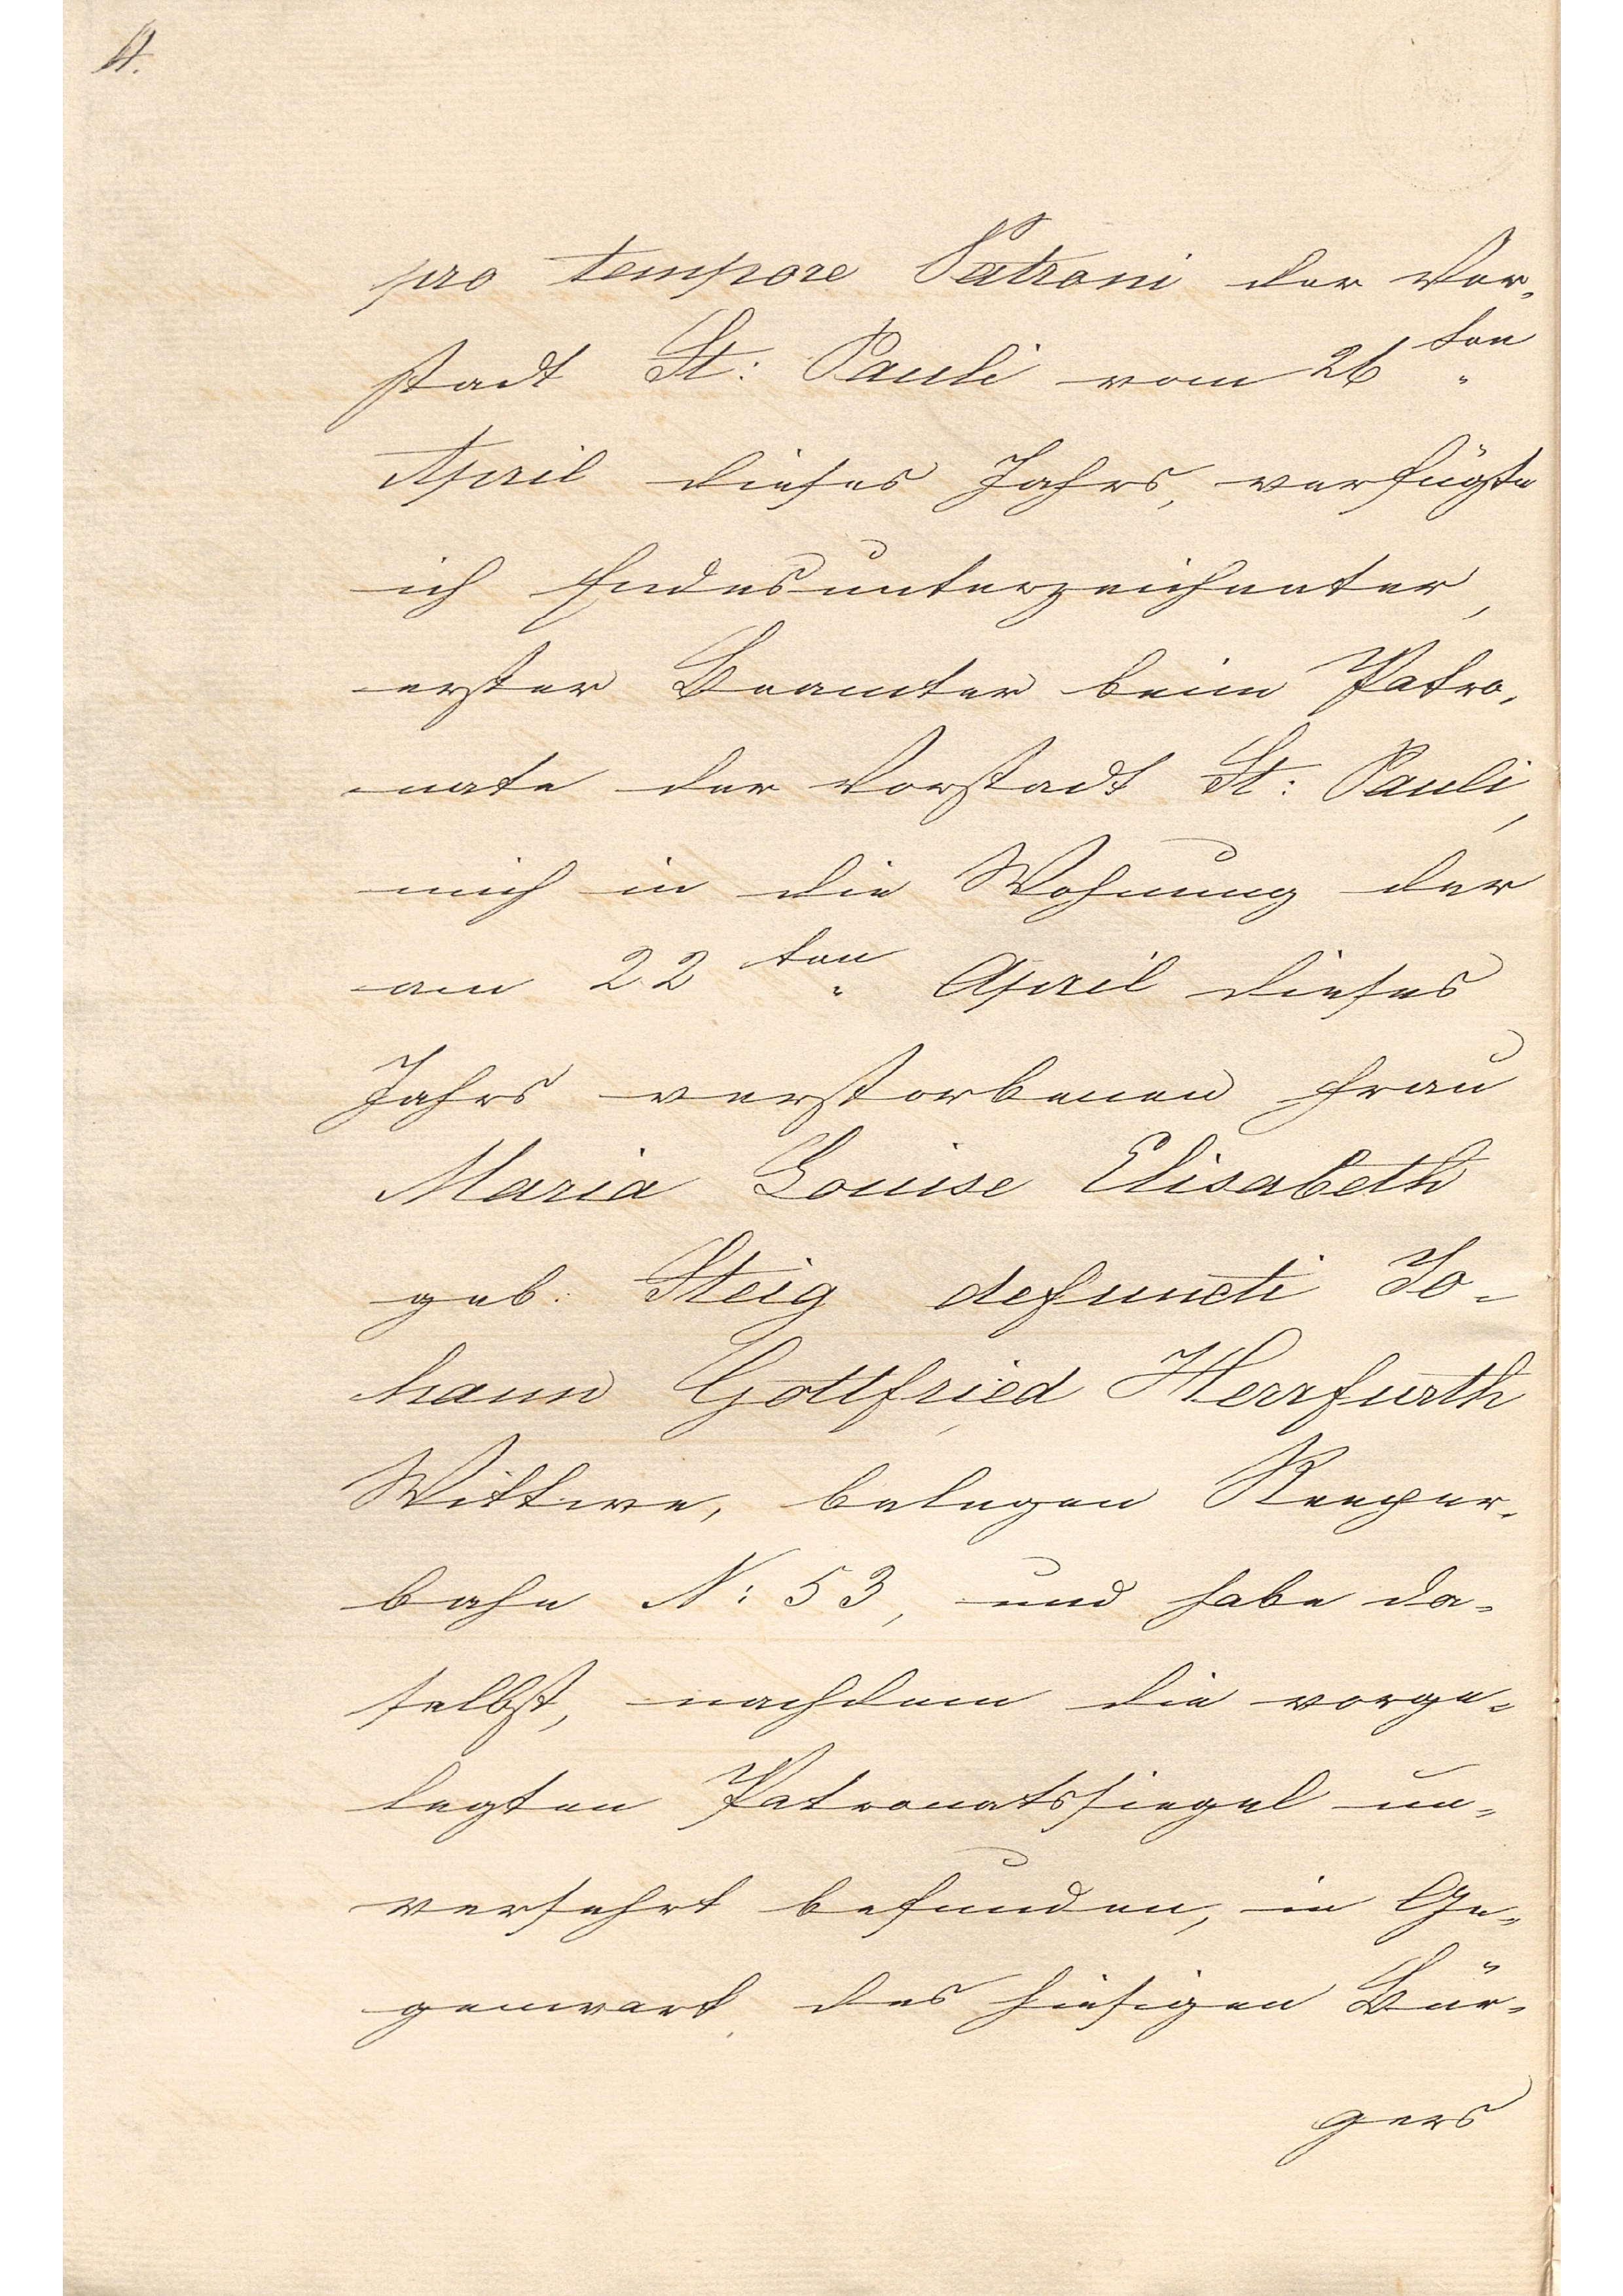 pro tempore Patroni der Vor-
stadt St: Pauli vom 26ten
April dieses Jahrs, verfügte
ich Endesunterzeichneter,
erster Beamter beim Patro-
nate der Vorstadt St: Pauli,
mich in die Wohnung der
am 22ten April dieses
Jahrs verstorbenen Frau
Maria Louise Elisabeth
geb: Steig defuncti Jo-
hann Gottfried Herrfurth
Wittwe, belegen Reeper-
bahn N: 53, und habe da-
selbst, nachdem die vorge-
legten Patronatssiegel un-
versehrt befunden, in Ge-
genwart des hiesigen Bür-
gers